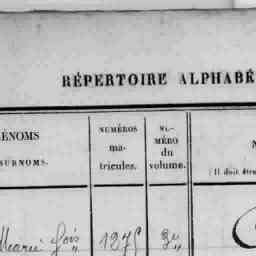 RÉPERTOIRE ALPHABÉ
ÉNOMS
SURNOMS.
NUMÉROS
ma-
tricules.
NU-
MÉRO
du
volume.
N
(Il doit être
Marie fois 1275 3"